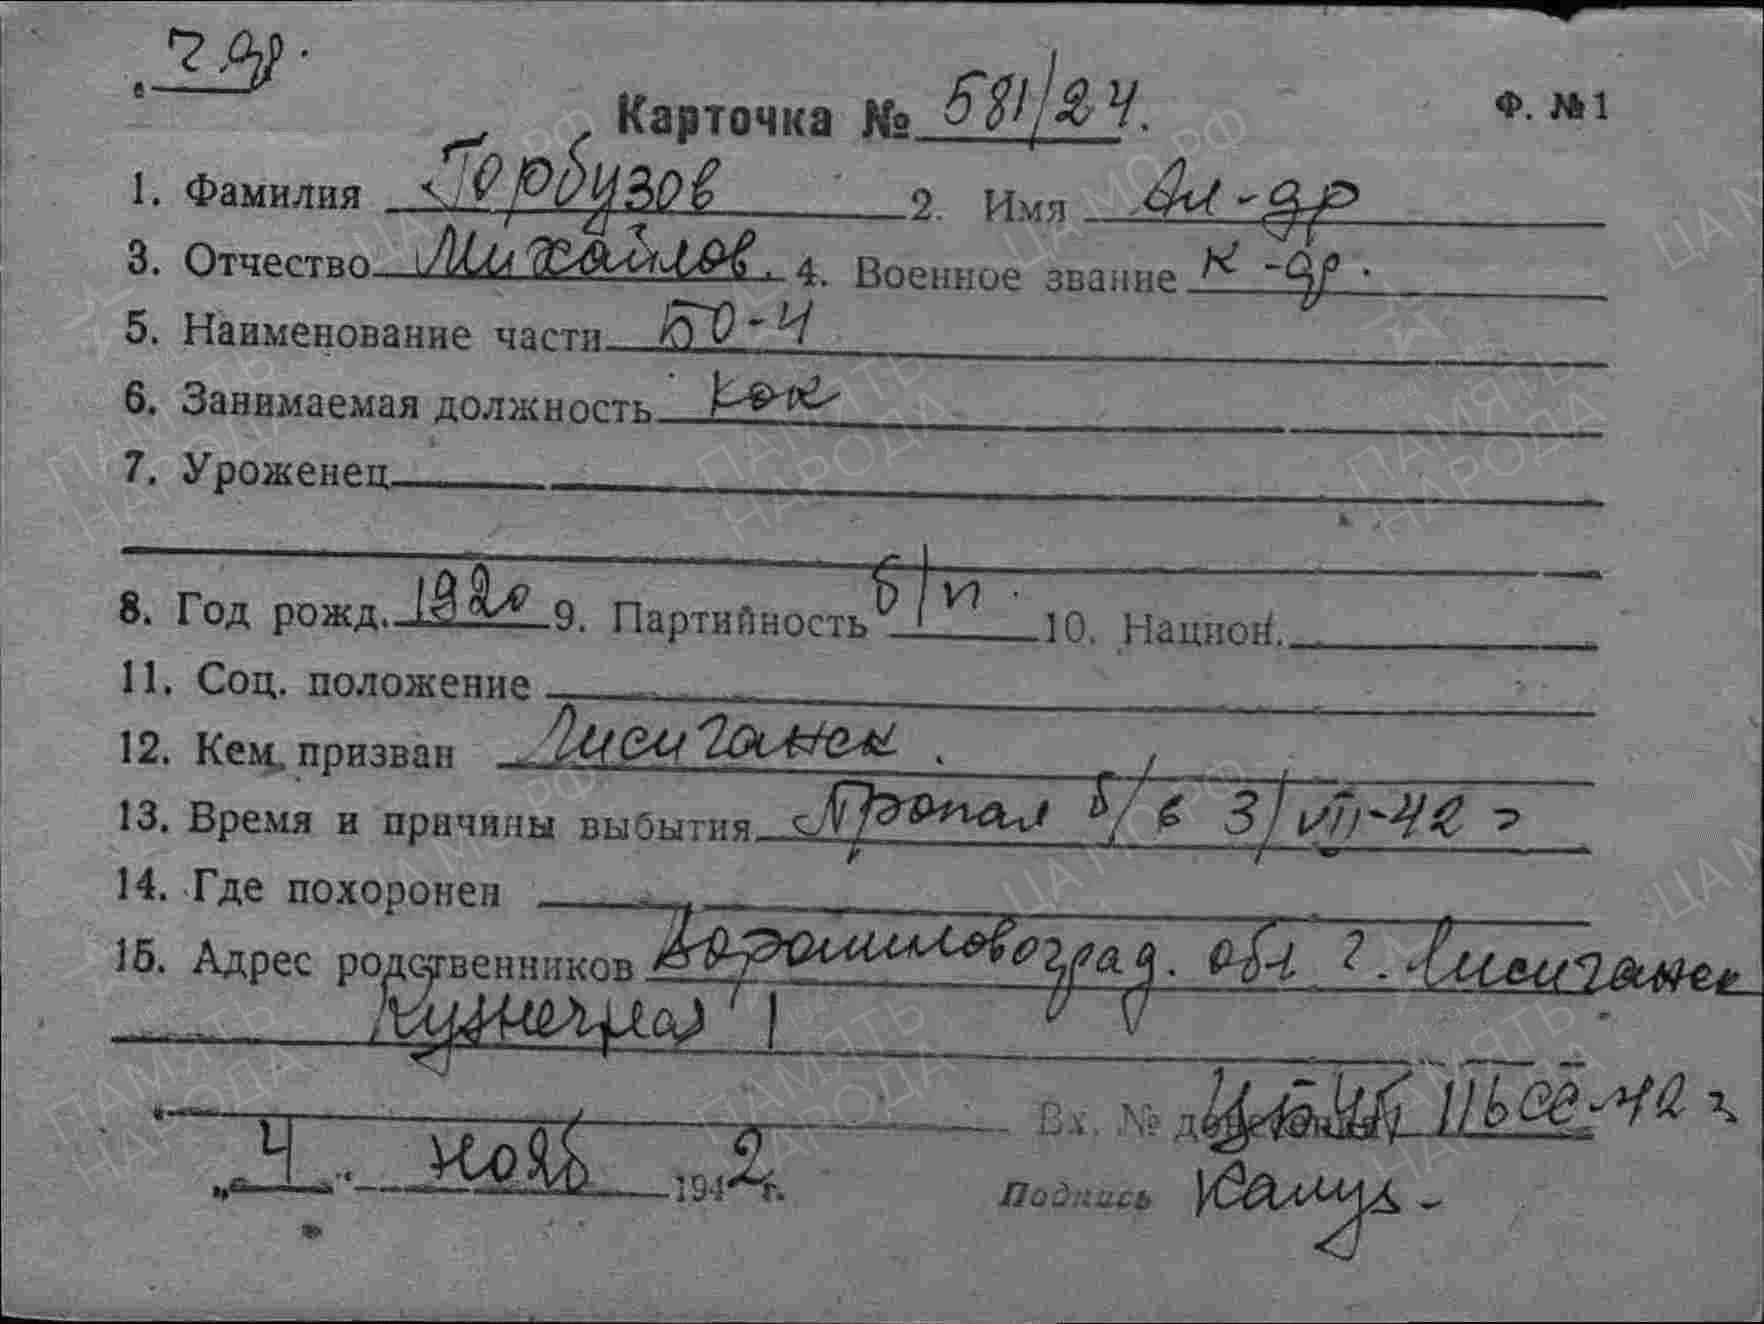 Карточка № 581/24.
Ф. №1
1. Фамилия Горбузов 2. Имя Ал-др
3. Отчество Михайлов. 4. Военное звание к-др.
5. Наименование части 50-4
6. Занимаемая должность
7. Уроженец
8. Год рожд. 1920 9. Партийность б/п. 10. Национ.
11. Соц. положение
12. Кем призван Лисичанск.
13. Время и причины выбытия Пропал б/в 3/VII-42 г
14. Где похоронен
15. Адрес родственников Ворошиловград. обл г. Лисичанск
Кузнечная 1
Вх. № 1166сс-42 г
„ 4 " нояб 1942 г.
Подпись